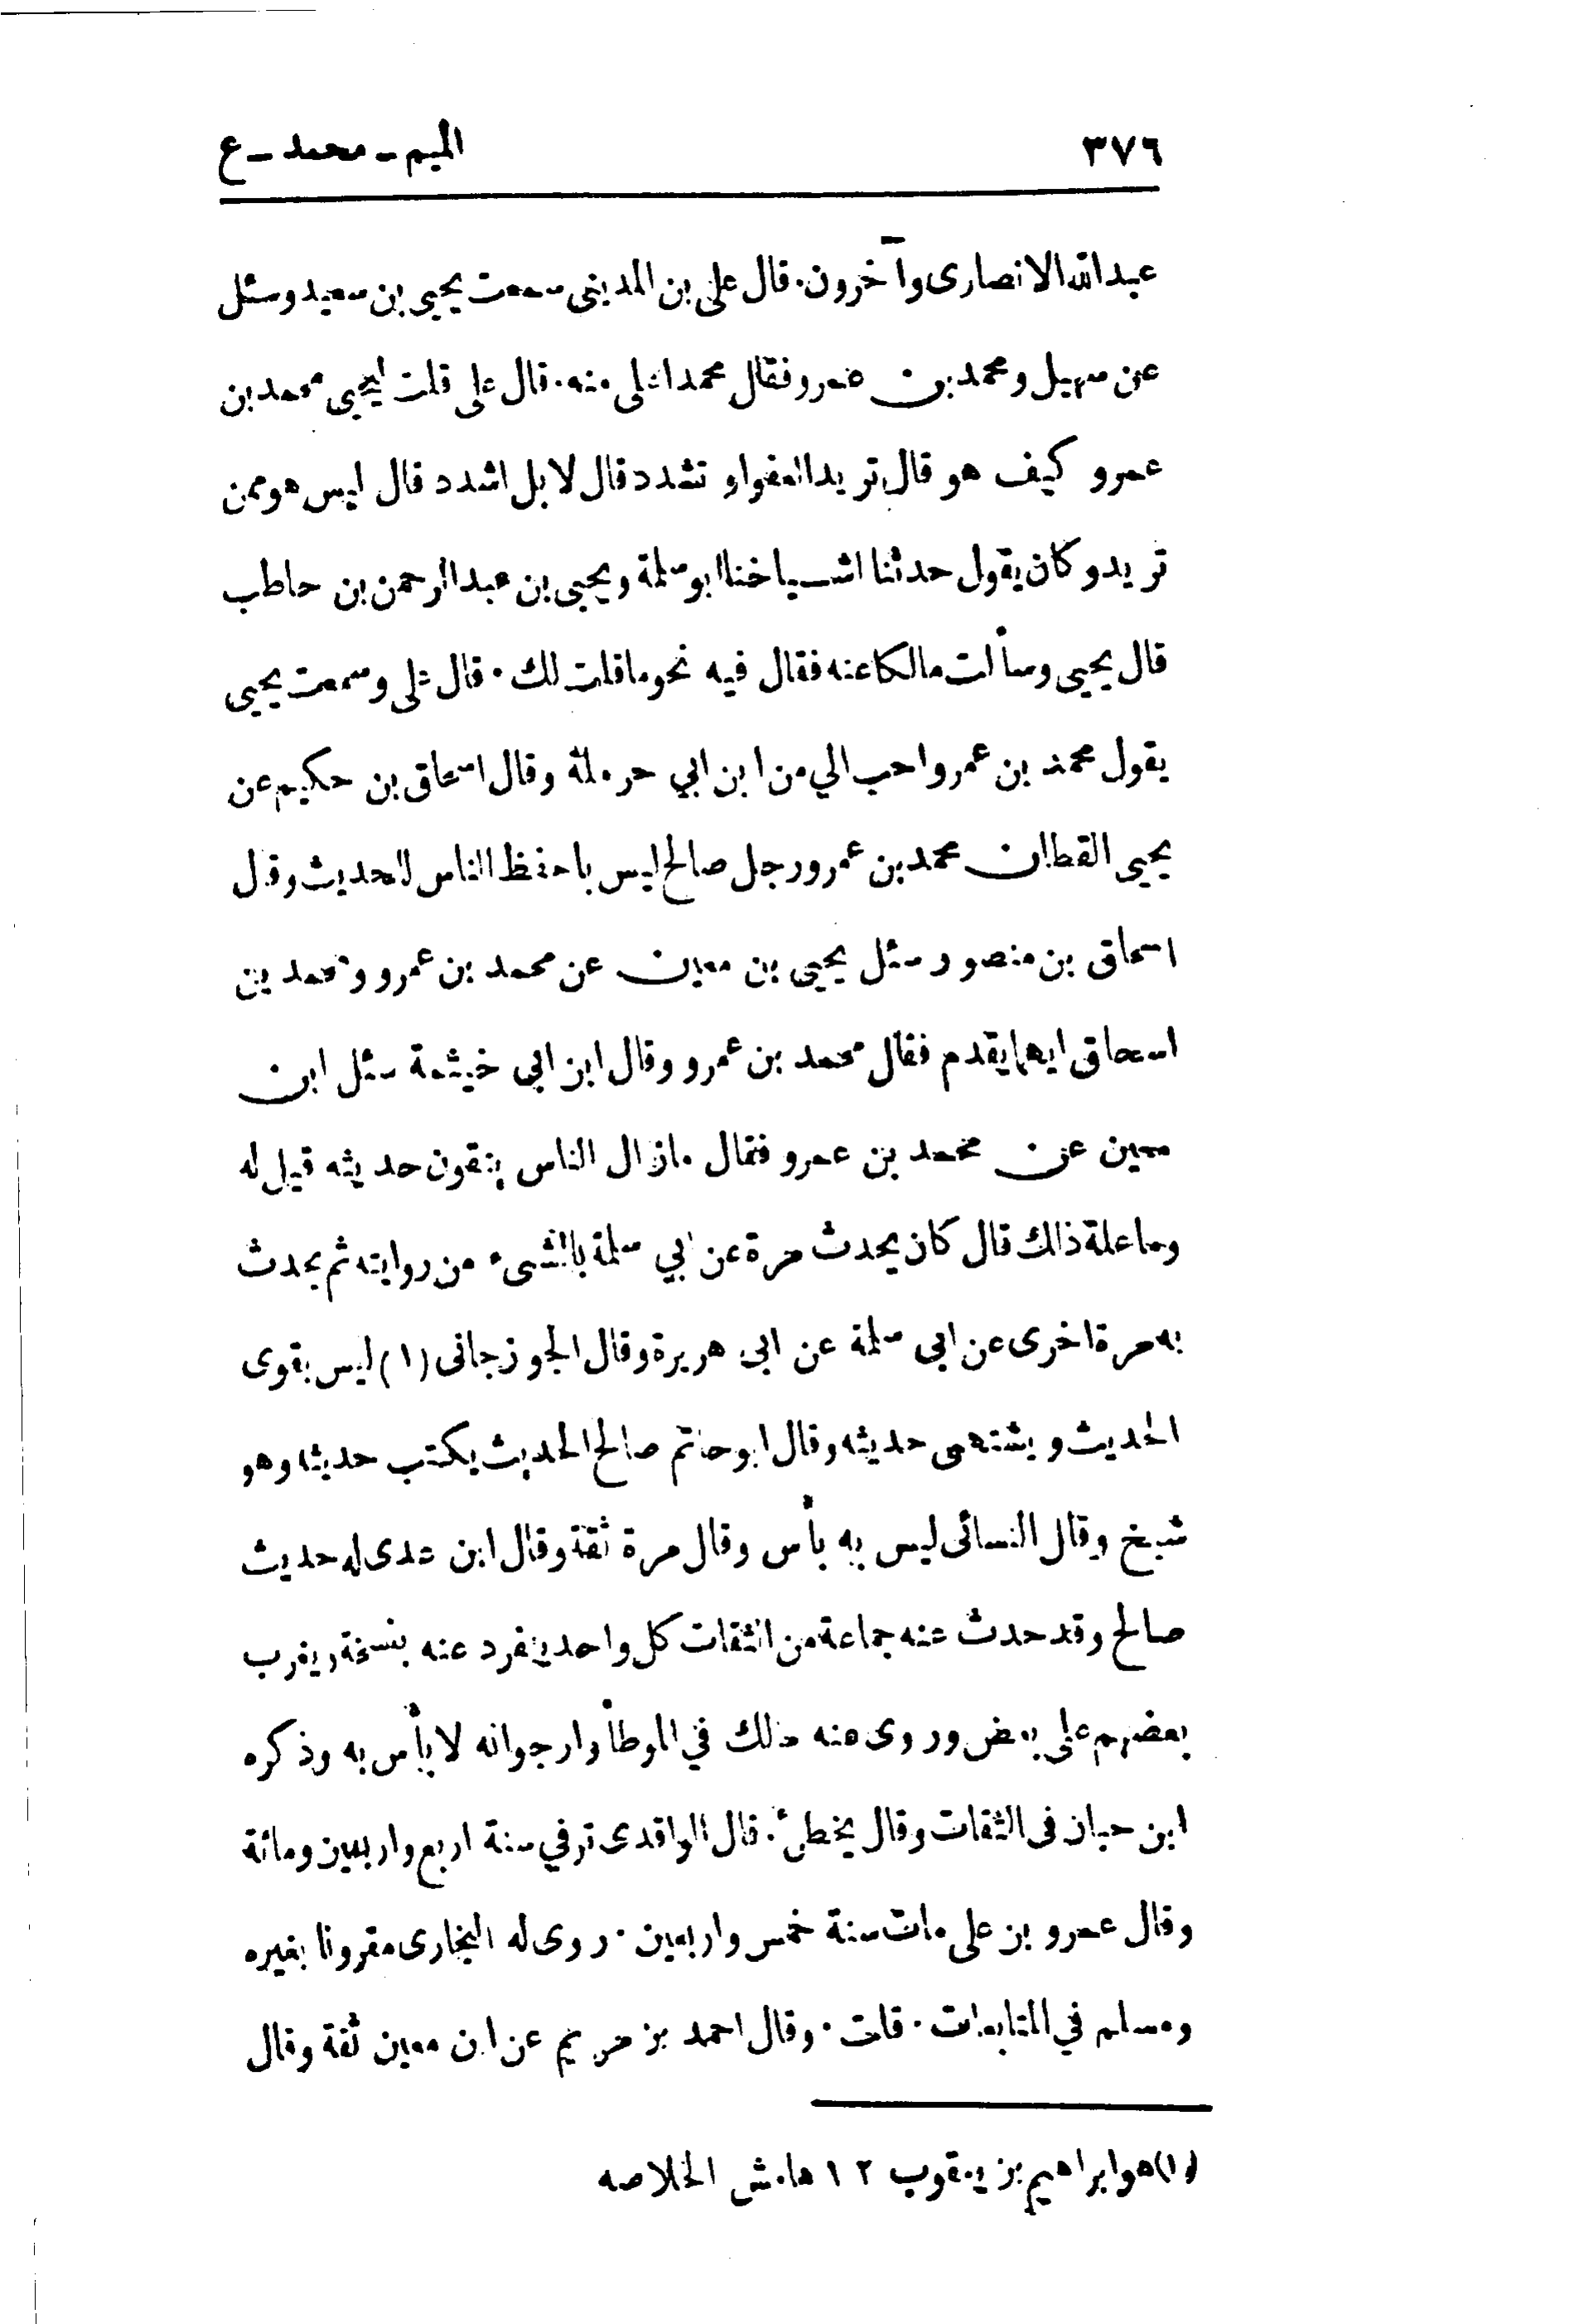 ٣٧٦
الميم ـ محمد ـ ع
عبدالله الانصارى وآخرون . قال على بن المدينى سمعت يحيى بن سعيد وسئل
عن سهيل ومحمد بن عمرو فقال محمد اعلى منه . قال على قلت ليحيى محمد بن
عمرو كيف هو قال تريد العفو او تشدد قال لا بل اشدد قال ليس هو ممن
تريد وكان يقول حدثنا اشياخنا ابو سلمة ويحيى بن عبدالرحمن بن حاطب
قال يحيى وسألت مالكا عنه فقال فيه نحو ما قلت لك . قال على وسمعت يحيى
يقول محمد بن عمرو احب الي من ابن ابي حرملة وقال اسحاق بن حكيم عن
يحيى القطان محمد بن عمرو رجل صالح ليس باحفظ الناس للحديث وقال
اسحاق بن منصور سئل يحيى بن معين عن محمد بن عمرو ومحمد بن
اسحاق ايهما يقدم فقال محمد بن عمرو وقال ابن ابى خيثمة سئل ابن
معين عن محمد بن عمرو فقال مازال الناس يتقون حديثه قيل له
وما علة ذلك قال كان يحدث مرة عن ابي سلمة بالشىء من روايته ثم يحدث
به مرة اخرى عن ابى سلمة عن ابى هريرة وقال الجوزجانى (١) ليس بقوى
الحديث ويشتهى حديثه وقال ابو حاتم صالح الحديث يكتب حديثه وهو
شيخ وقال النسائى ليس به بأس وقال مرة ثقة وقال ابن عدى له حديث
صالح وقد حدث عنه جماعة من الثقات كل واحد ينفرد عنه بنسخة ويغرب
بعضهم على بعض وروى عنه مالك في الموطأ وارجو انه لا بأس به وذكره
ابن حبان فى الثقات وقال يخطئ . قال الواقدى توفي سنة اربع واربعين ومائة
وقال عمرو بن على مات سنة خمس واربعين . روى له البخارى مقرونا بغيره
ومسلم في المتابعات . قلت . وقال احمد بن مريم عن ابن معين ثقة وقال
(١) هو ابراهيم بن يعقوب ١٢ هامش الخلاصه